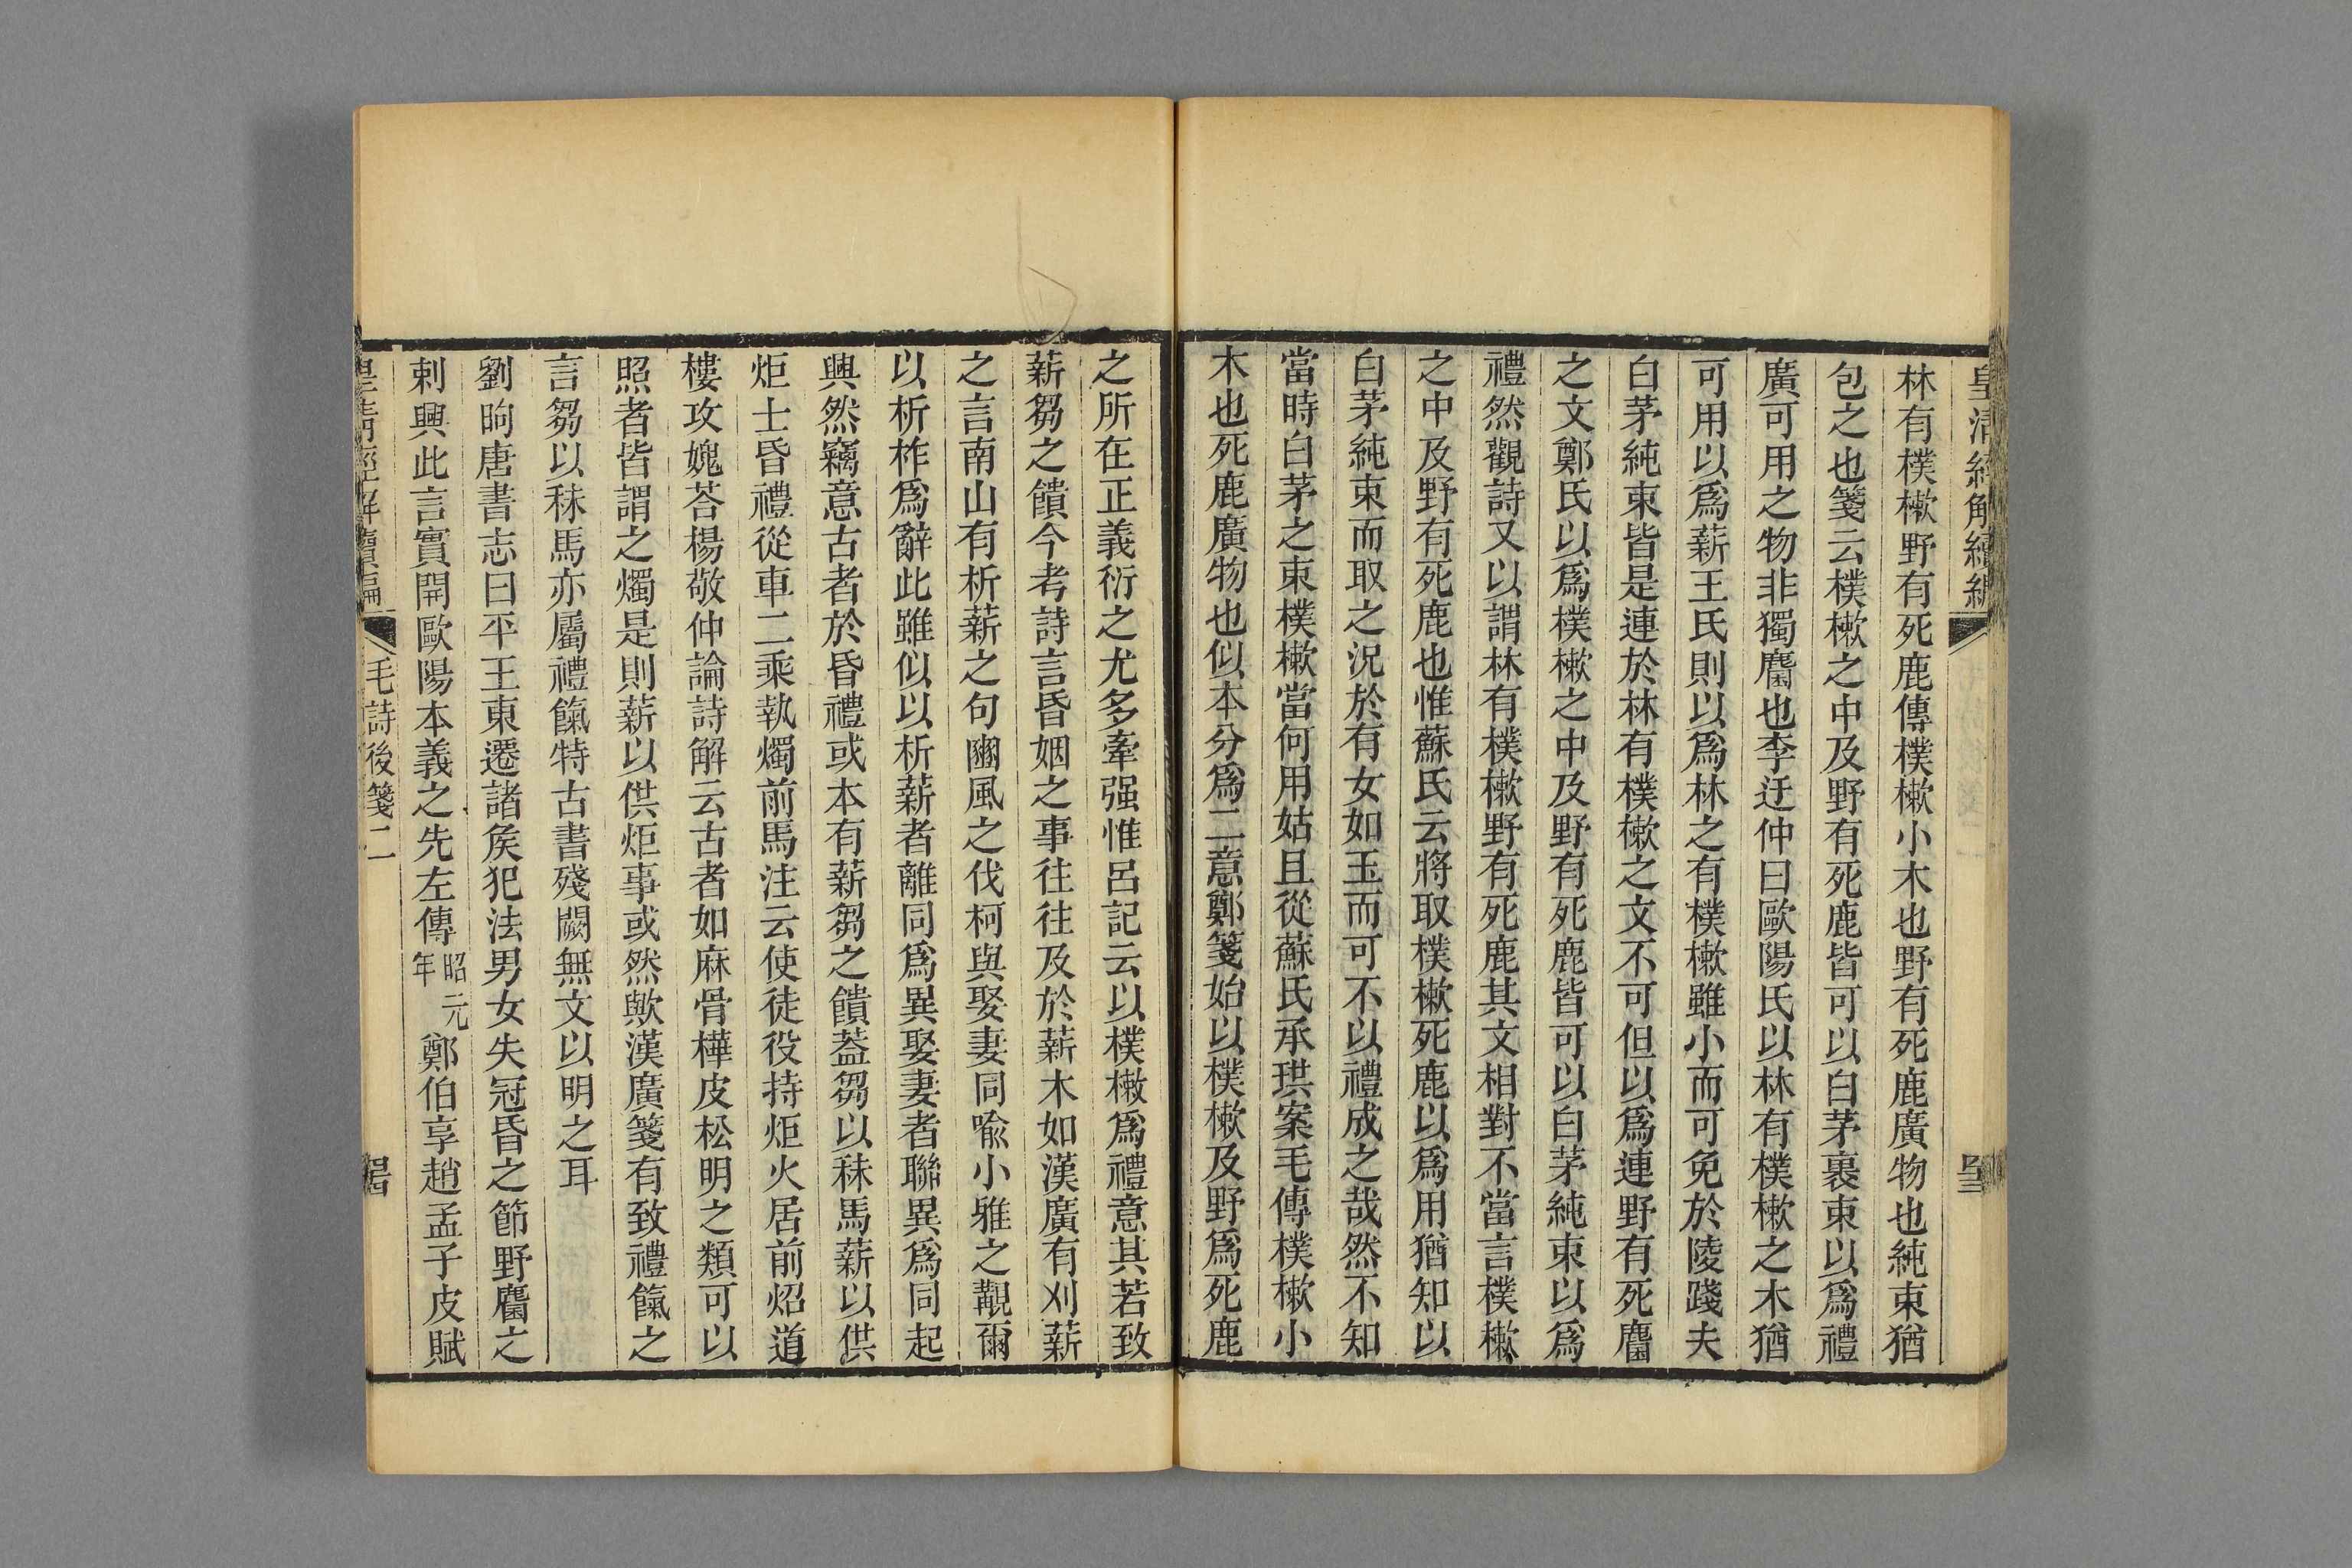 皇清經解續編
林有樸樕野有死鹿傳樸樕小木也野有死鹿廣物也純束猶
包之也箋云樸樕之中及野有死鹿皆可以白茅裹束以爲禮
廣可用之物非獨麕也李迂仲曰歐陽氏以林有樸樕之木猶
可用以爲薪王氏則以爲林之有樸樕雖小而可免於陵踐夫
白茅純束皆是連於林有樸樕之文不可但以爲連野有死麕
之文鄭氏以爲樸樕之中及野有死鹿皆可以白茅純束以爲
禮然觀詩又以謂林有樸樕野有死鹿其文相對不當言樸樕
之中及野有死鹿也惟蘇氏云將取樸樕死鹿以爲用猶知以
白茅純束而取之況於有女如玉而可不以禮成之哉然不知
當時白茅之束樸樕當何用姑且從蘇氏承珙案毛傳樸樕小
木也死鹿廣物也似本分爲二意鄭箋始以樸樕及野爲死鹿
之所在正義衍之尤多牽强惟呂記云以樸樕爲禮意其若致
薪芻之饋今考詩言昏姻之事往往及於薪木如漢廣有刈薪
之言南山有析薪之句豳風之伐柯與娶妻同喻小雅之覯爾
以析柞爲辭此雖似以析薪者離同爲異娶妻者聯異爲同起
興然竊意古者於昏禮或本有薪芻之饋葢芻以秣馬薪以供
炬士昏禮從車二乘執燭前馬注云使徒役持炬火居前炤道
樓攻媿荅楊敬仲論詩解云古者如麻骨樺皮松明之類可以
照者皆謂之燭是則薪以供炬事或然歟漢廣箋有致禮餼之
言芻以秣馬亦屬禮餼特古書殘闕無文以明之耳
劉昫唐書志曰平王東遷諸矦犯法男女失冠昏之節野麕之
刺興此言實開歐陽本義之先左傳昭元年鄭伯享趙孟子皮賦
皇淸經解續編 毛詩後箋二